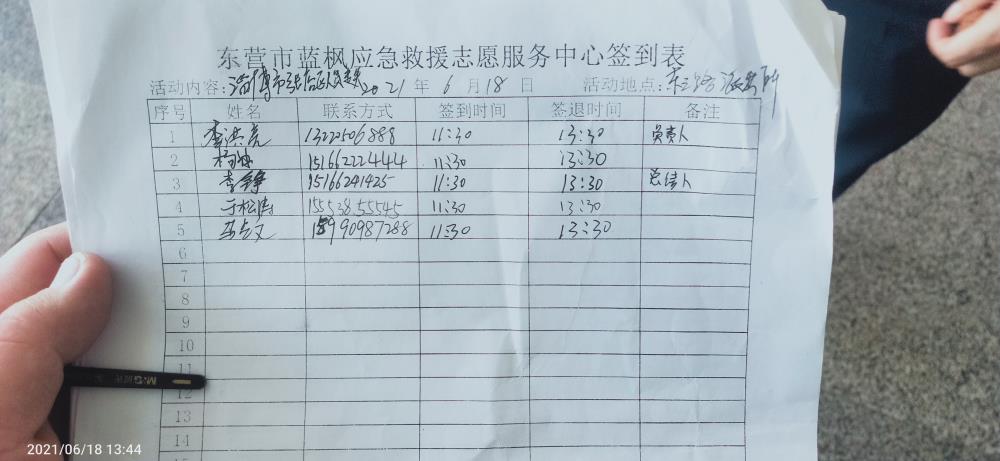 东营市蓝枫应急救援志愿服务中心签到表
活动内容: 淄博市 2021 年 6 月 18 日 活动地点: 派出所
序号 姓名 联系方式 签到时间 签退时间 备注
1 李洪亮 1322506888 11:30 13:30 负责人
2 15166222444 11:30 13:30
3 李铮 15166241425 11:30 13:30
4 于松涛 15553855545 11:30 13:30
5 15990987288 11:30 13:30
6
7
8
9
10
11
12
13
14
M&G
2021/06/18 13:44